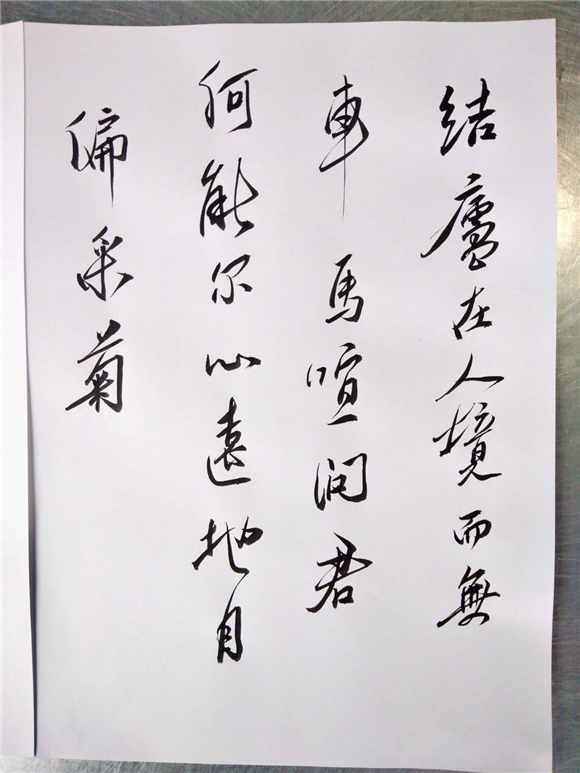 结廬在人境而無
車馬喧问君
何能尔心遠地自
偏采菊